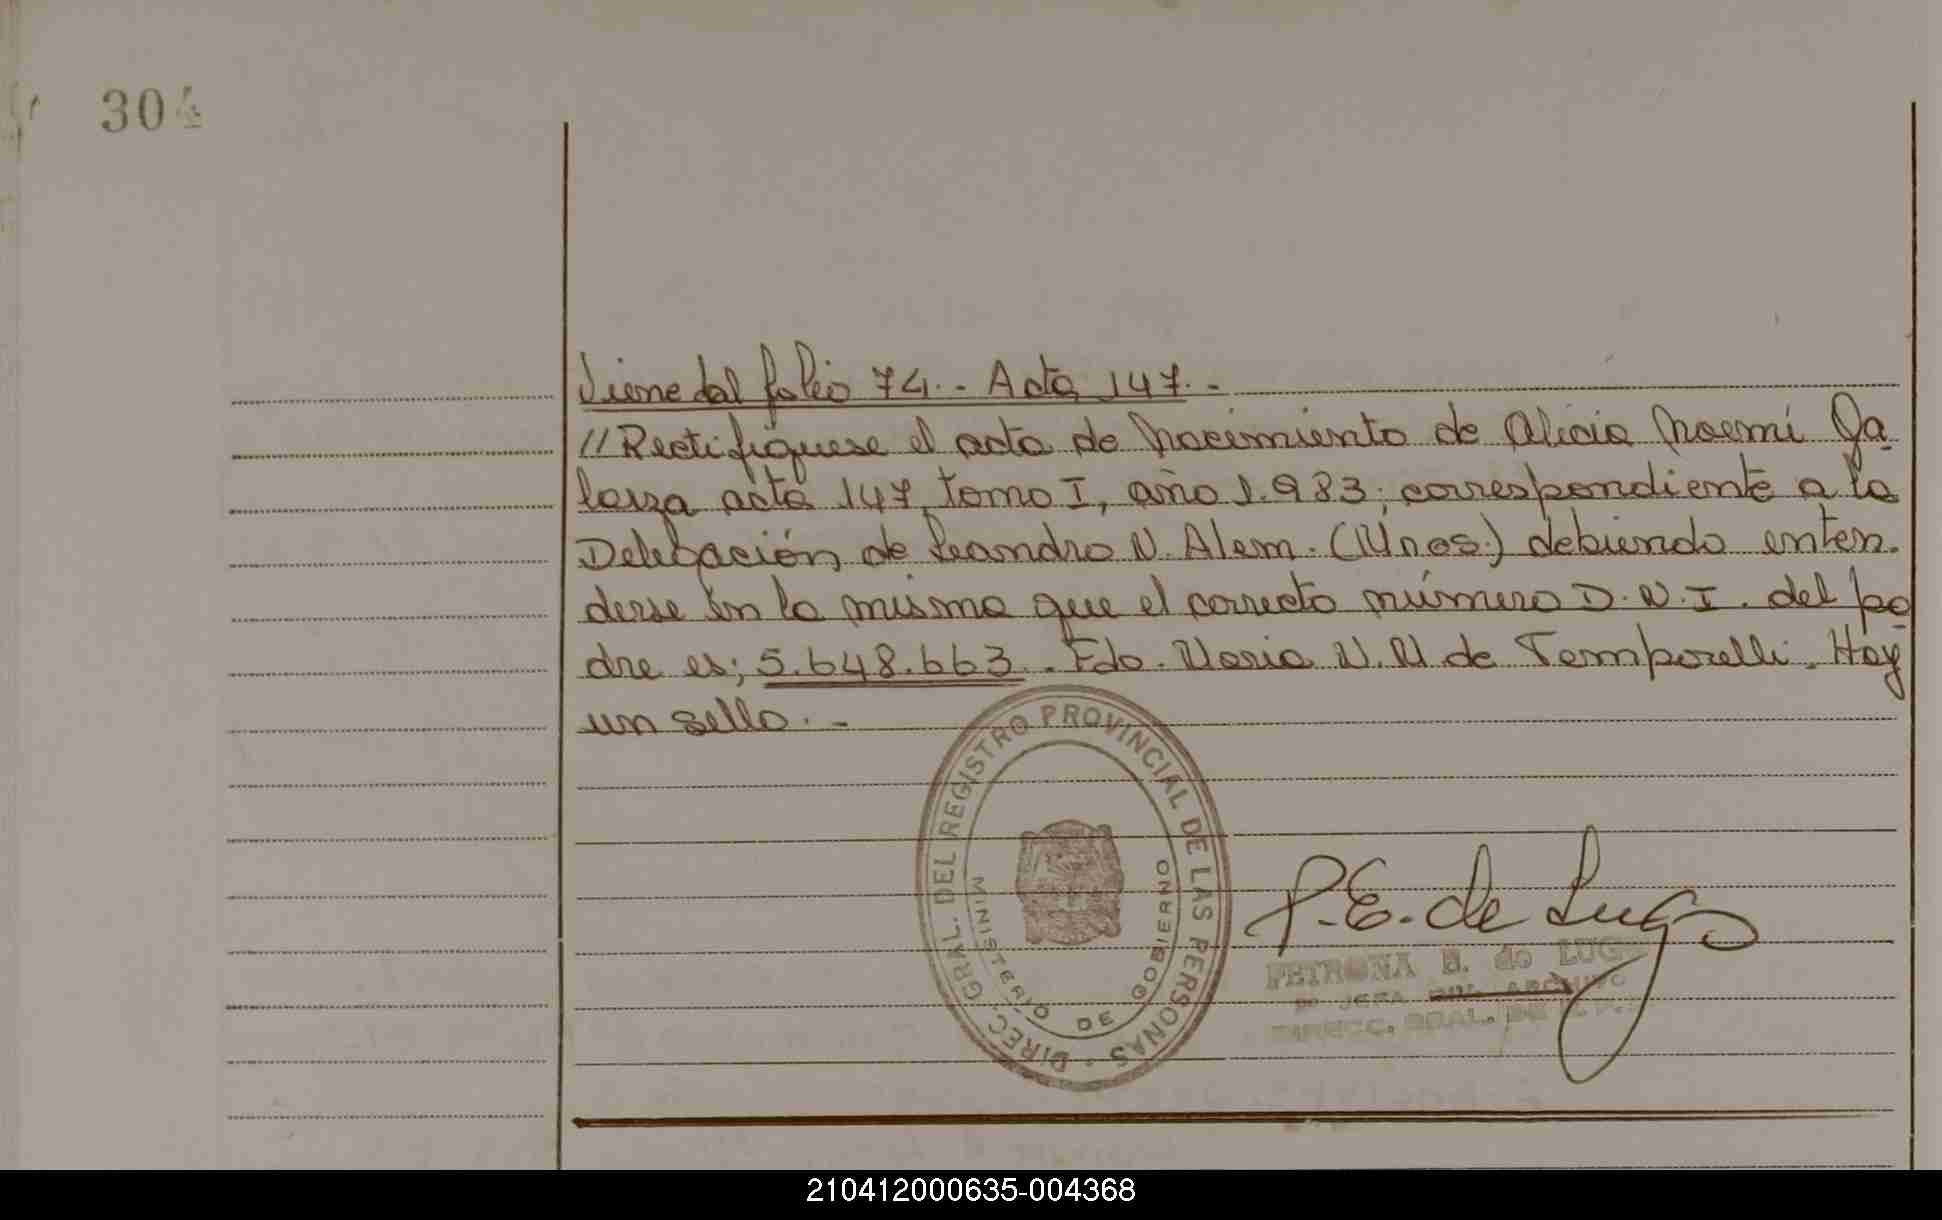 304
Viene del folio 74.- Acta 147.-
//Rectifíquese el acta de Nacimiento de Alicia Noemí Ga
larza acta 147, tomo I, año 1.983; correspondiente a la
Delegación de Leandro N. Alem. (Mnes.) debiendo enten.
derse en la misma que el correcto número D.N.I. del pa
dre es; 5.648.663. Fdo. María N. M de Temporelli. Hay
un sello.-
DIREC. GRAL. DEL REGISTRO PROVINCIAL DE LAS PERSONAS
MINISTERIO DE GOBIERNO
P.E. de Lugo
PETRONA E. de LUGO
JEFA DEL ARCHIVO
DIRECC. GRAL. DE
210412000635-004368